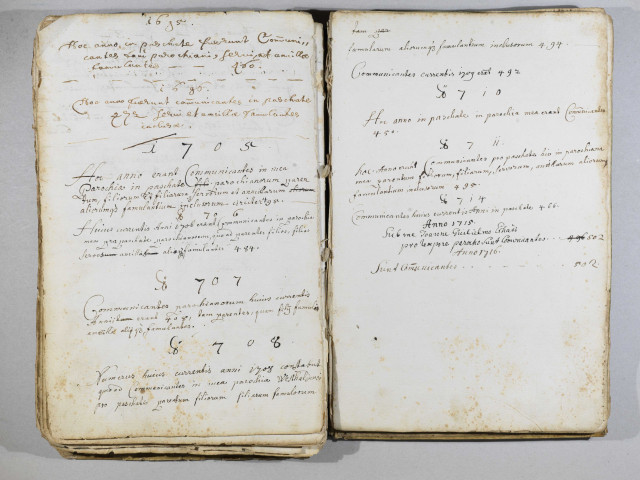 1695.
Hoc anno in paschate fuerunt Communi=
cantes tam parochiani servi et ancillae
famulantes 466.
1696.
Hoc anno fuerunt communicantes in paschate
472 servi et ancillae famulantes
1705
Hoc anno erant Communicantes in mea
Parochia in paschate parochianorum paren
tum, filiorum et filiarum servorum et ancillarum
aliorumq famulantium inclusorum
1706
Huius currentis anni 1706 erant Communicantes in parochia
mea paschate, parochianorum, quoad parentes filios, filias
servos ancillas aliosq famulantes 484.
1707
Communicantes parochianorum huius currentis
Anni erant tam parentes, quam filij famuli
ancillae alijq famulantes.
1708
Numerus huius currentis anni 1708 constabat
quoad Communicantes in mea parochia
pro paschate parentum filiorum filiarum famulorum
famularum aliorumq famulantium inclusorum 494.
Communicantes currentis 1709 erat 492
1710
Hoc anno in paschate in parochia mea erant Communicantes
450.
1711.
Hoc Anno erant Communicantes pro paschate hic in parochia
mea parentum filiorum, filiarum, servorum, ancillarum aliorumq
famulantium inclusorum 490.
1714
Communicantes huius currentis Anni in paschate 466.
Anno 1715.
Sub me Joanne Guilielmo
pro tempore Communicantes 502
Anno 1716.
Sunt Communicantes 502